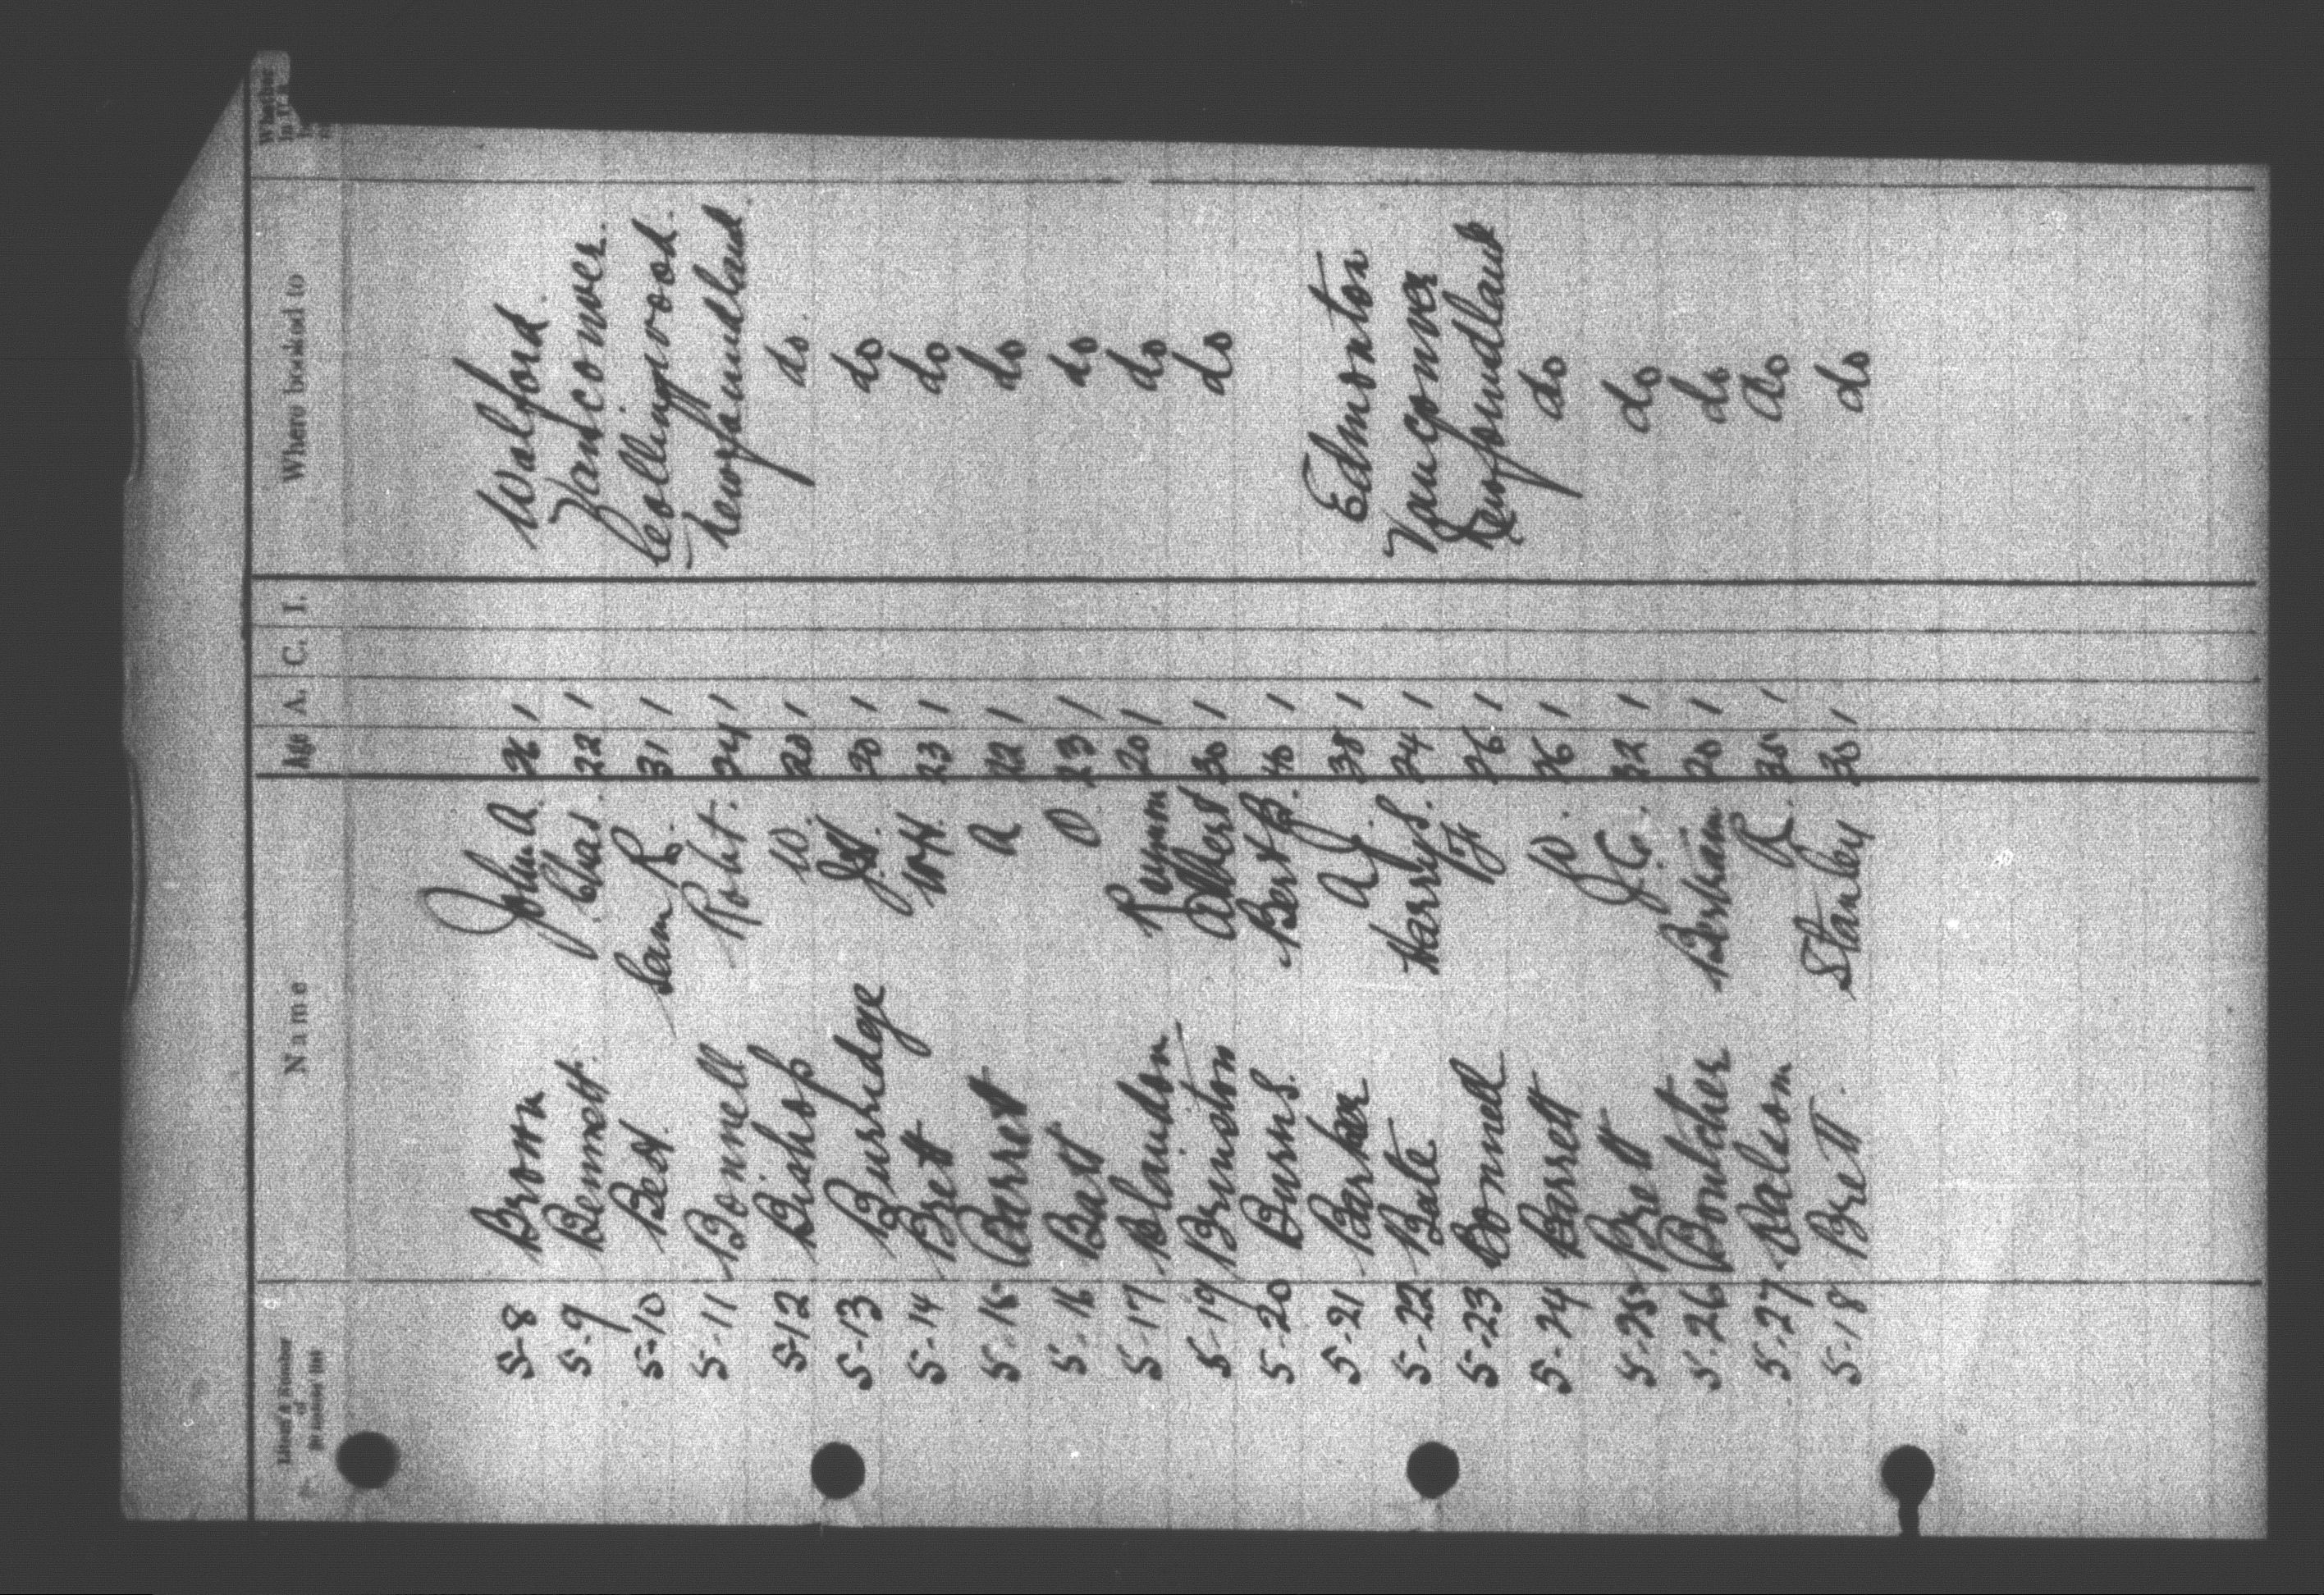 Name Age A. C. I. Where booked to
5-8 Brown John A. 26 1 Walford
5-9 Bennett Chas. 22 1 Vancouver.
5-10 Best Sam R. 31 1 Collingwood.
5-11 Bonnell Robt. 24 1 Newfoundland.
5-12 Bishop W. 20 1 do.
5-13 Burridge 20 1 do
5-14 Brett 23 1 do
5-15 Barrett A 22 1 do
5-16 Batt 23 1 do
5-17 20 1 do
5-19 Brinston Albert 30 1 do
5-20 Burns. Bert B. 40 1
5-21 Barker A J. 38 1 Edmonton
5-22 Bate Harry S. 24 1 Vancouver
5-23 Bonnell 26 1 Newfoundland
5-24 Barrett W. 26 1 do
5-25 Brett J. C. 32 1 do
5-26 Boutcher Bertram 20 1 do
5-27 R. 1 do
5-18 Brett. Stanley 20 1 do